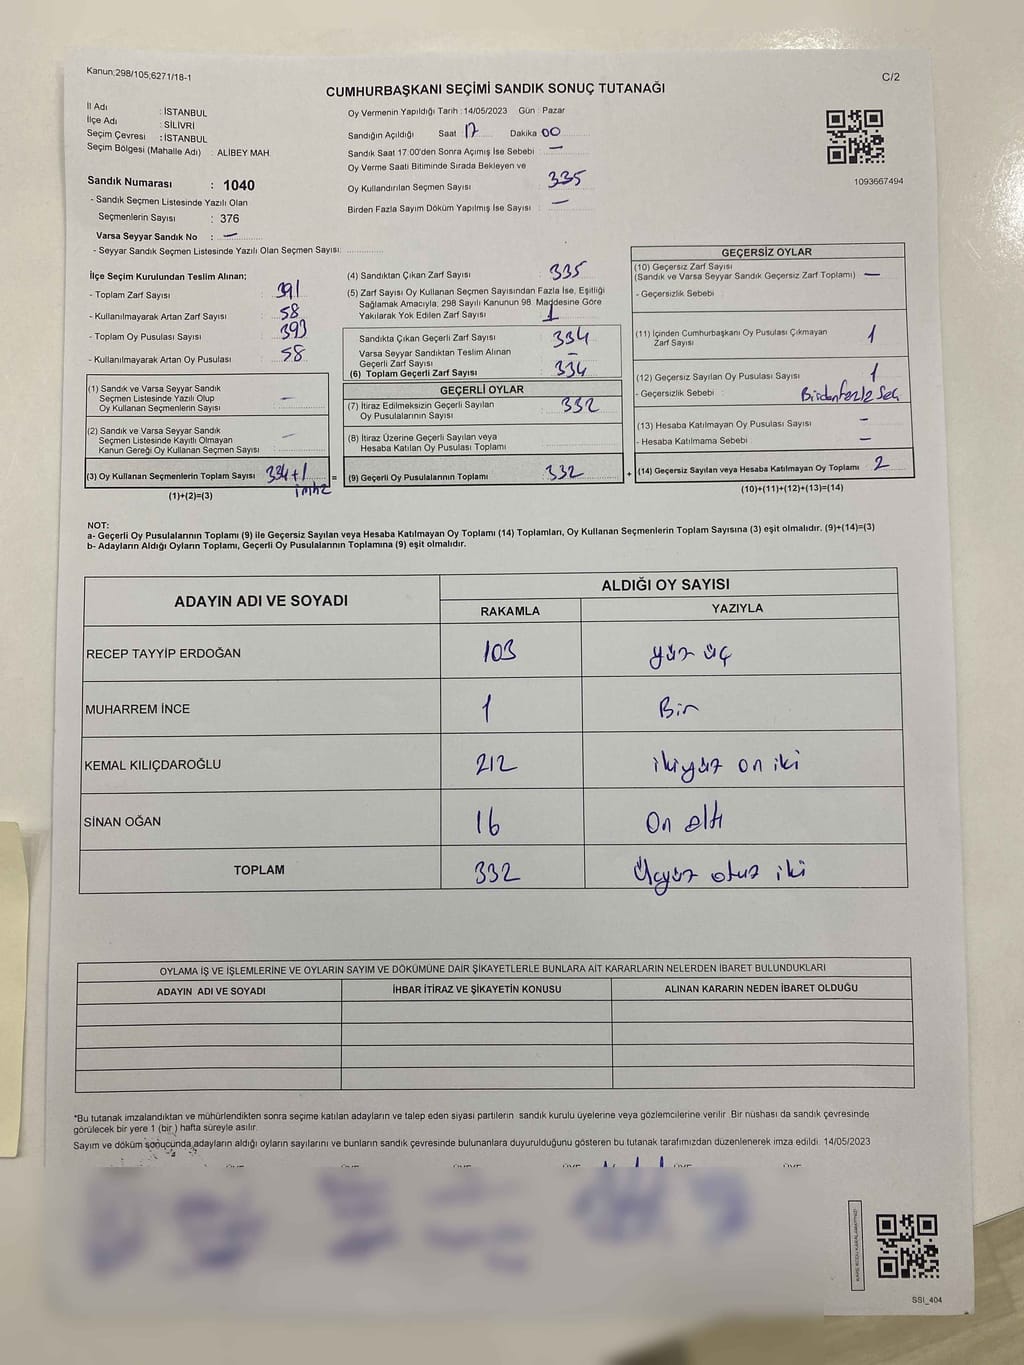 Kanun;298/105,6271/18-1
C/2
CUMHURBAŞKANI SEÇİMİ SANDIK SONUÇ TUTANAĞI
İl Adı : İSTANBUL
İlçe Adı : SİLİVRİ
Seçim Çevresi : İSTANBUL
Seçim Bölgesi (Mahalle Adı) : ALİBEY MAH.
Sandık Numarası : 1040
- Sandık Seçmen Listesinde Yazılı Olan
Seçmenlerin Sayısı : 376
Varsa Seyyar Sandık No : —
- Seyyar Sandık Seçmen Listesinde Yazılı Olan Seçmen Sayısı:
Oy Vermenin Yapıldığı Tarih : 14/05/2023 Gün : Pazar
Sandığın Açıldığı Saat 17 Dakika 00
Sandık Saat 17:00'den Sonra Açımış İse Sebebi : —
Oy Verme Saati Bitiminde Sırada Bekleyen ve
Oy Kullandırılan Seçmen Sayısı : 335
Birden Fazla Sayım Döküm Yapılmış İse Sayısı : —
1093667494
İlçe Seçim Kurulundan Teslim Alınan;
- Toplam Zarf Sayısı : 391
- Kullanılmayarak Artan Zarf Sayısı : 58
- Toplam Oy Pusulası Sayısı : 393
- Kullanılmayarak Artan Oy Pusulası : 58
(1) Sandık ve Varsa Seyyar Sandık
Seçmen Listesinde Yazılı Olup
Oy Kullanan Seçmenlerin Sayısı : —
(2) Sandık ve Varsa Seyyar Sandık
Seçmen Listesinde Kayıtlı Olmayan
Kanun Gereği Oy Kullanan Seçmen Sayısı : —
(3) Oy Kullanan Seçmenlerin Toplam Sayısı 334+1
imha
(1)+(2)=(3)
(4) Sandıktan Çıkan Zarf Sayısı : 335
(5) Zarf Sayısı Oy Kullanan Seçmen Sayısından Fazla İse, Eşitliği
Sağlamak Amacıyla, 298 Sayılı Kanunun 98. Maddesine Göre
Yakılarak Yok Edilen Zarf Sayısı : 1
Sandıkta Çıkan Geçerli Zarf Sayısı : 334
Varsa Seyyar Sandıktan Teslim Alınan
Geçerli Zarf Sayısı : —
(6) Toplam Geçerli Zarf Sayısı : 334
GEÇERLİ OYLAR
(7) İtiraz Edilmeksizin Geçerli Sayılan
Oy Pusulalarının Sayısı : 332
(8) İtiraz Üzerine Geçerli Sayılan veya
Hesaba Katılan Oy Pusulası Toplamı :
= (9) Geçerli Oy Pusulalarının Toplamı : 332
GEÇERSİZ OYLAR
(10) Geçersiz Zarf Sayısı
(Sandık ve Varsa Seyyar Sandık Geçersiz Zarf Toplamı) —
- Geçersizlik Sebebi :
(11) İçinden Cumhurbaşkanı Oy Pusulası Çıkmayan
Zarf Sayısı : 1
(12) Geçersiz Sayılan Oy Pusulası Sayısı : 1
- Geçersizlik Sebebi : Birden fazla Seç.
(13) Hesaba Katılmayan Oy Pusulası Sayısı : —
- Hesaba Katılmama Sebebi : —
+ (14) Geçersiz Sayılan veya Hesaba Katılmayan Oy Toplamı : 2
(10)+(11)+(12)+(13)=(14)
NOT:
a- Geçerli Oy Pusulalarının Toplamı (9) ile Geçersiz Sayılan veya Hesaba Katılmayan Oy Toplamı (14) Toplamları, Oy Kullanan Seçmenlerin Toplam Sayısına (3) eşit olmalıdır. (9)+(14)=(3)
b- Adayların Aldığı Oyların Toplamı, Geçerli Oy Pusulalarının Toplamına (9) eşit olmalıdır.
ADAYIN ADI VE SOYADI
ALDIĞI OY SAYISI
RAKAMLA YAZIYLA
RECEP TAYYİP ERDOĞAN 103 yüz üç
MUHARREM İNCE 1 Bir
KEMAL KILIÇDAROĞLU 212 ikiyüz on iki
SİNAN OĞAN 16 On altı
TOPLAM 332 Üçyüz otuz iki
OYLAMA İŞ VE İŞLEMLERİNE VE OYLARIN SAYIM VE DÖKÜMÜNE DAİR ŞİKAYETLERLE BUNLARA AİT KARARLARIN NELERDEN İBARET BULUNDUKLARI
ADAYIN ADI VE SOYADI İHBAR İTİRAZ VE ŞİKAYETİN KONUSU ALINAN KARARIN NEDEN İBARET OLDUĞU
*Bu tutanak imzalandıktan ve mühürlendikten sonra seçime katılan adayların ve talep eden siyasi partilerin sandık kurulu üyelerine veya gözlemcilerine verilir. Bir nüshası da sandık çevresinde
görülecek bir yere 1 (bir ) hafta süreyle asılır.
Sayım ve döküm sonucunda adayların aldığı oyların sayılarını ve bunların sandık çevresinde bulunanlara duyurulduğunu gösteren bu tutanak tarafımızdan düzenlenerek imza edildi. 14/05/2023
SSI_404